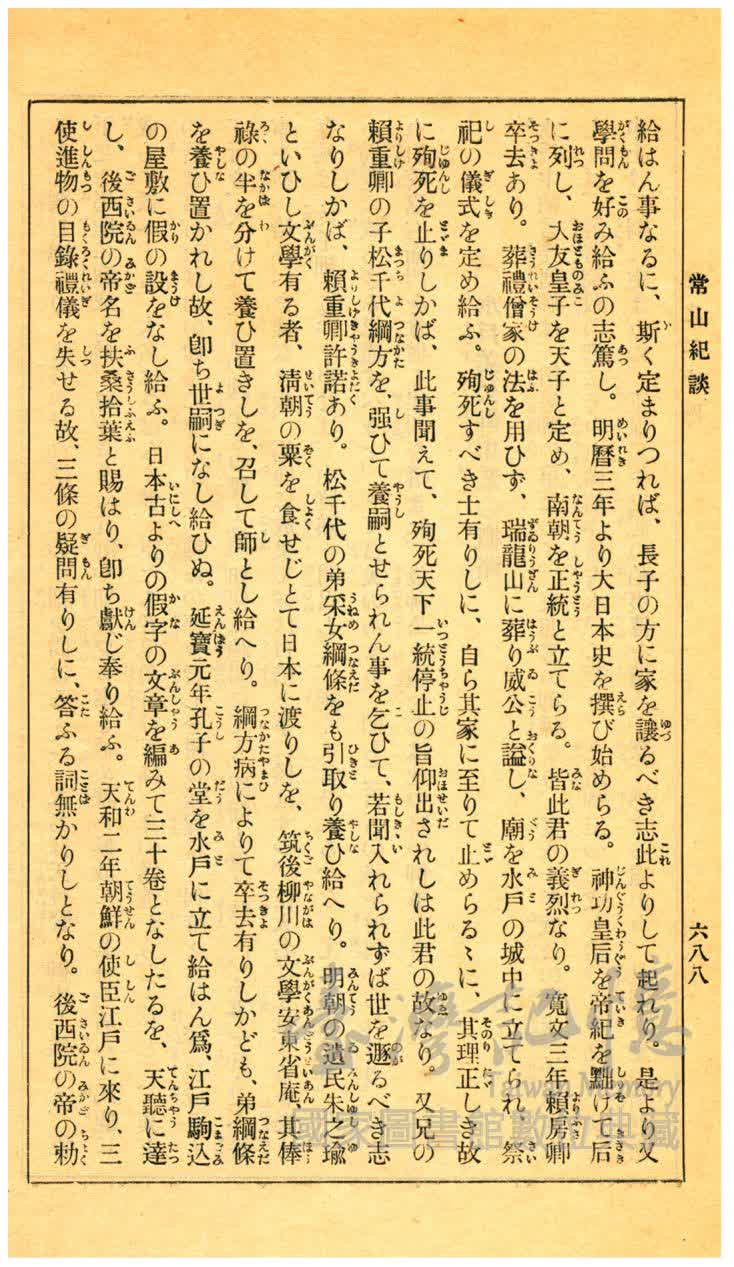 常山紀談
六八八
給はん事なるに、斯く定まりつれば、長子の方に家を讓るべき志此よりして起れり。是より又
學問を好み給ふの志篤し。明曆三年より大日本史を撰び始めらる。神功皇后を帝紀を黜けて后
に列し、大友皇子を天子と定め、南朝を正統と立てらる。皆此君の義烈なり。寬文三年賴房卿
卒去あり。葬禮僧家の法を用ひず、瑞龍山に葬り威公と謚し、廟を水戶の城中に立てられ、祭
祀の儀式を定め給ふ。殉死すべき士有りしに、自ら其家に至りて止めらるゝに、其理正しき故
に殉死を止りしかば、此事聞えて、殉死天下一統停止の旨仰出されしは此君の故なり。又兄の
賴重卿の子松千代綱方を、强ひて養嗣とせられん事を乞ひて、若聞入れられずば世を遯るべき志
なりしかば、賴重卿許諾あり。松千代の弟采女綱條をも引取り養ひ給へり。明朝の遺民朱之瑜
といひし文學有る者、淸朝の粟を食せじとて日本に渡りしを、筑後柳川の文學安東省庵、其俸
祿の半を分けて養ひ置きしを、召して師とし給へり。綱方病によりて卒去有りしかども、弟綱條
を養ひ置かれし故、卽ち世嗣になし給ひぬ。延寶元年孔子の堂を水戶に立て給はん爲、江戶駒込
の屋敷に假の設をなし給ふ。日本古よりの假字の文章を編みて三十卷となしたるを、天聽に達
し、後西院の帝名を扶桑拾葉と賜はり、卽ち獻じ奉り給ふ。天和二年朝鮮の使臣江戶に來り、三
使進物の目錄禮儀を失せる故、三條の疑問有りしに、答ふる詞無かりしとなり。後西院の帝の勅
臺灣記憶
Taiwan Memory
國家圖書館數位典藏